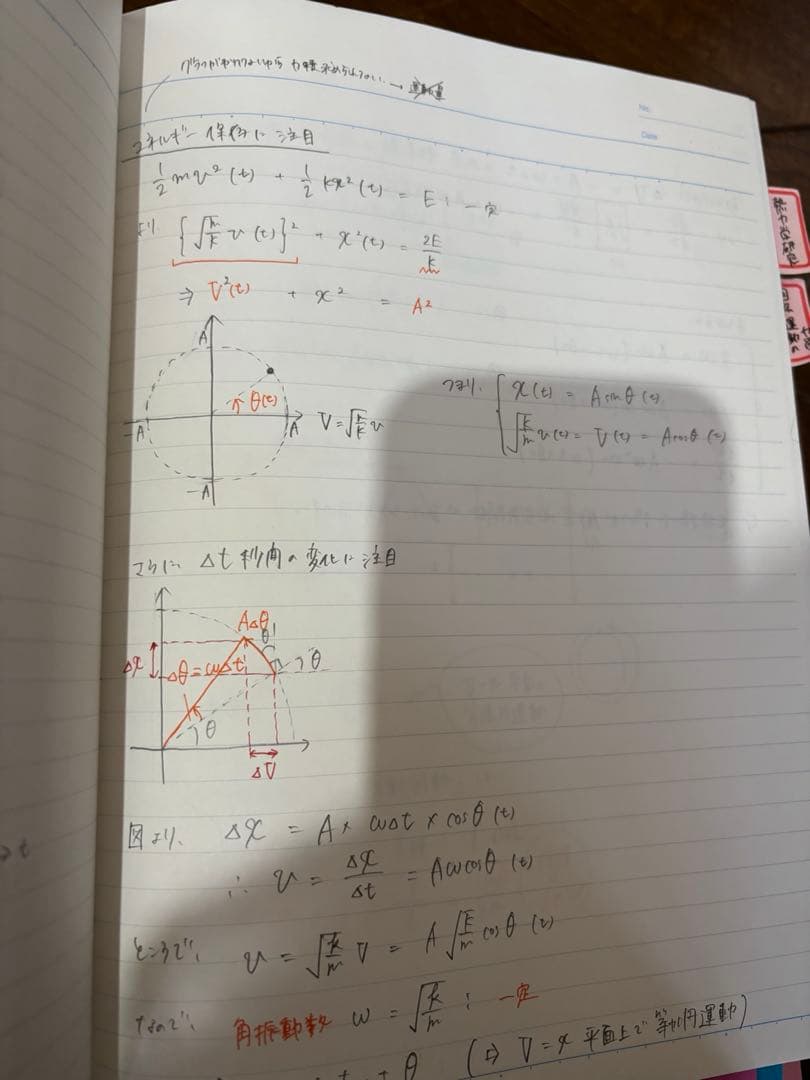 グラフがかけないから 力積求められない → 運動量
No.
Date
エネルギー保存に注目
1/2 mv²(t) + 1/2 kx²(t) = E : 一定
より、 {√(m/k) v(t)}² + x²(t) = 2E/k
⇒ V²(t) + x² = A²
A
θ(t)
-A
A
V = √(m/k) v
-A
つまり、 { x(t) = A sinθ(t)
√(k/m) v(t) = V(t) = A cosθ(t)
さらに、 Δt 秒間の変化に注目
AΔθ
θ
Δx
Δθ = ωΔt
θ
θ
ΔV
図より、 Δx = A × ωΔt × cosθ(t)
∴ v = Δx/Δt = Aω cosθ(t)
ところで、 v = √(k/m) V = A √(k/m) cosθ(t)
なので、 角振動数 ω = √(k/m) : 一定
t + θ (⇒ V=x 平面上で等加円運動)
熱力学